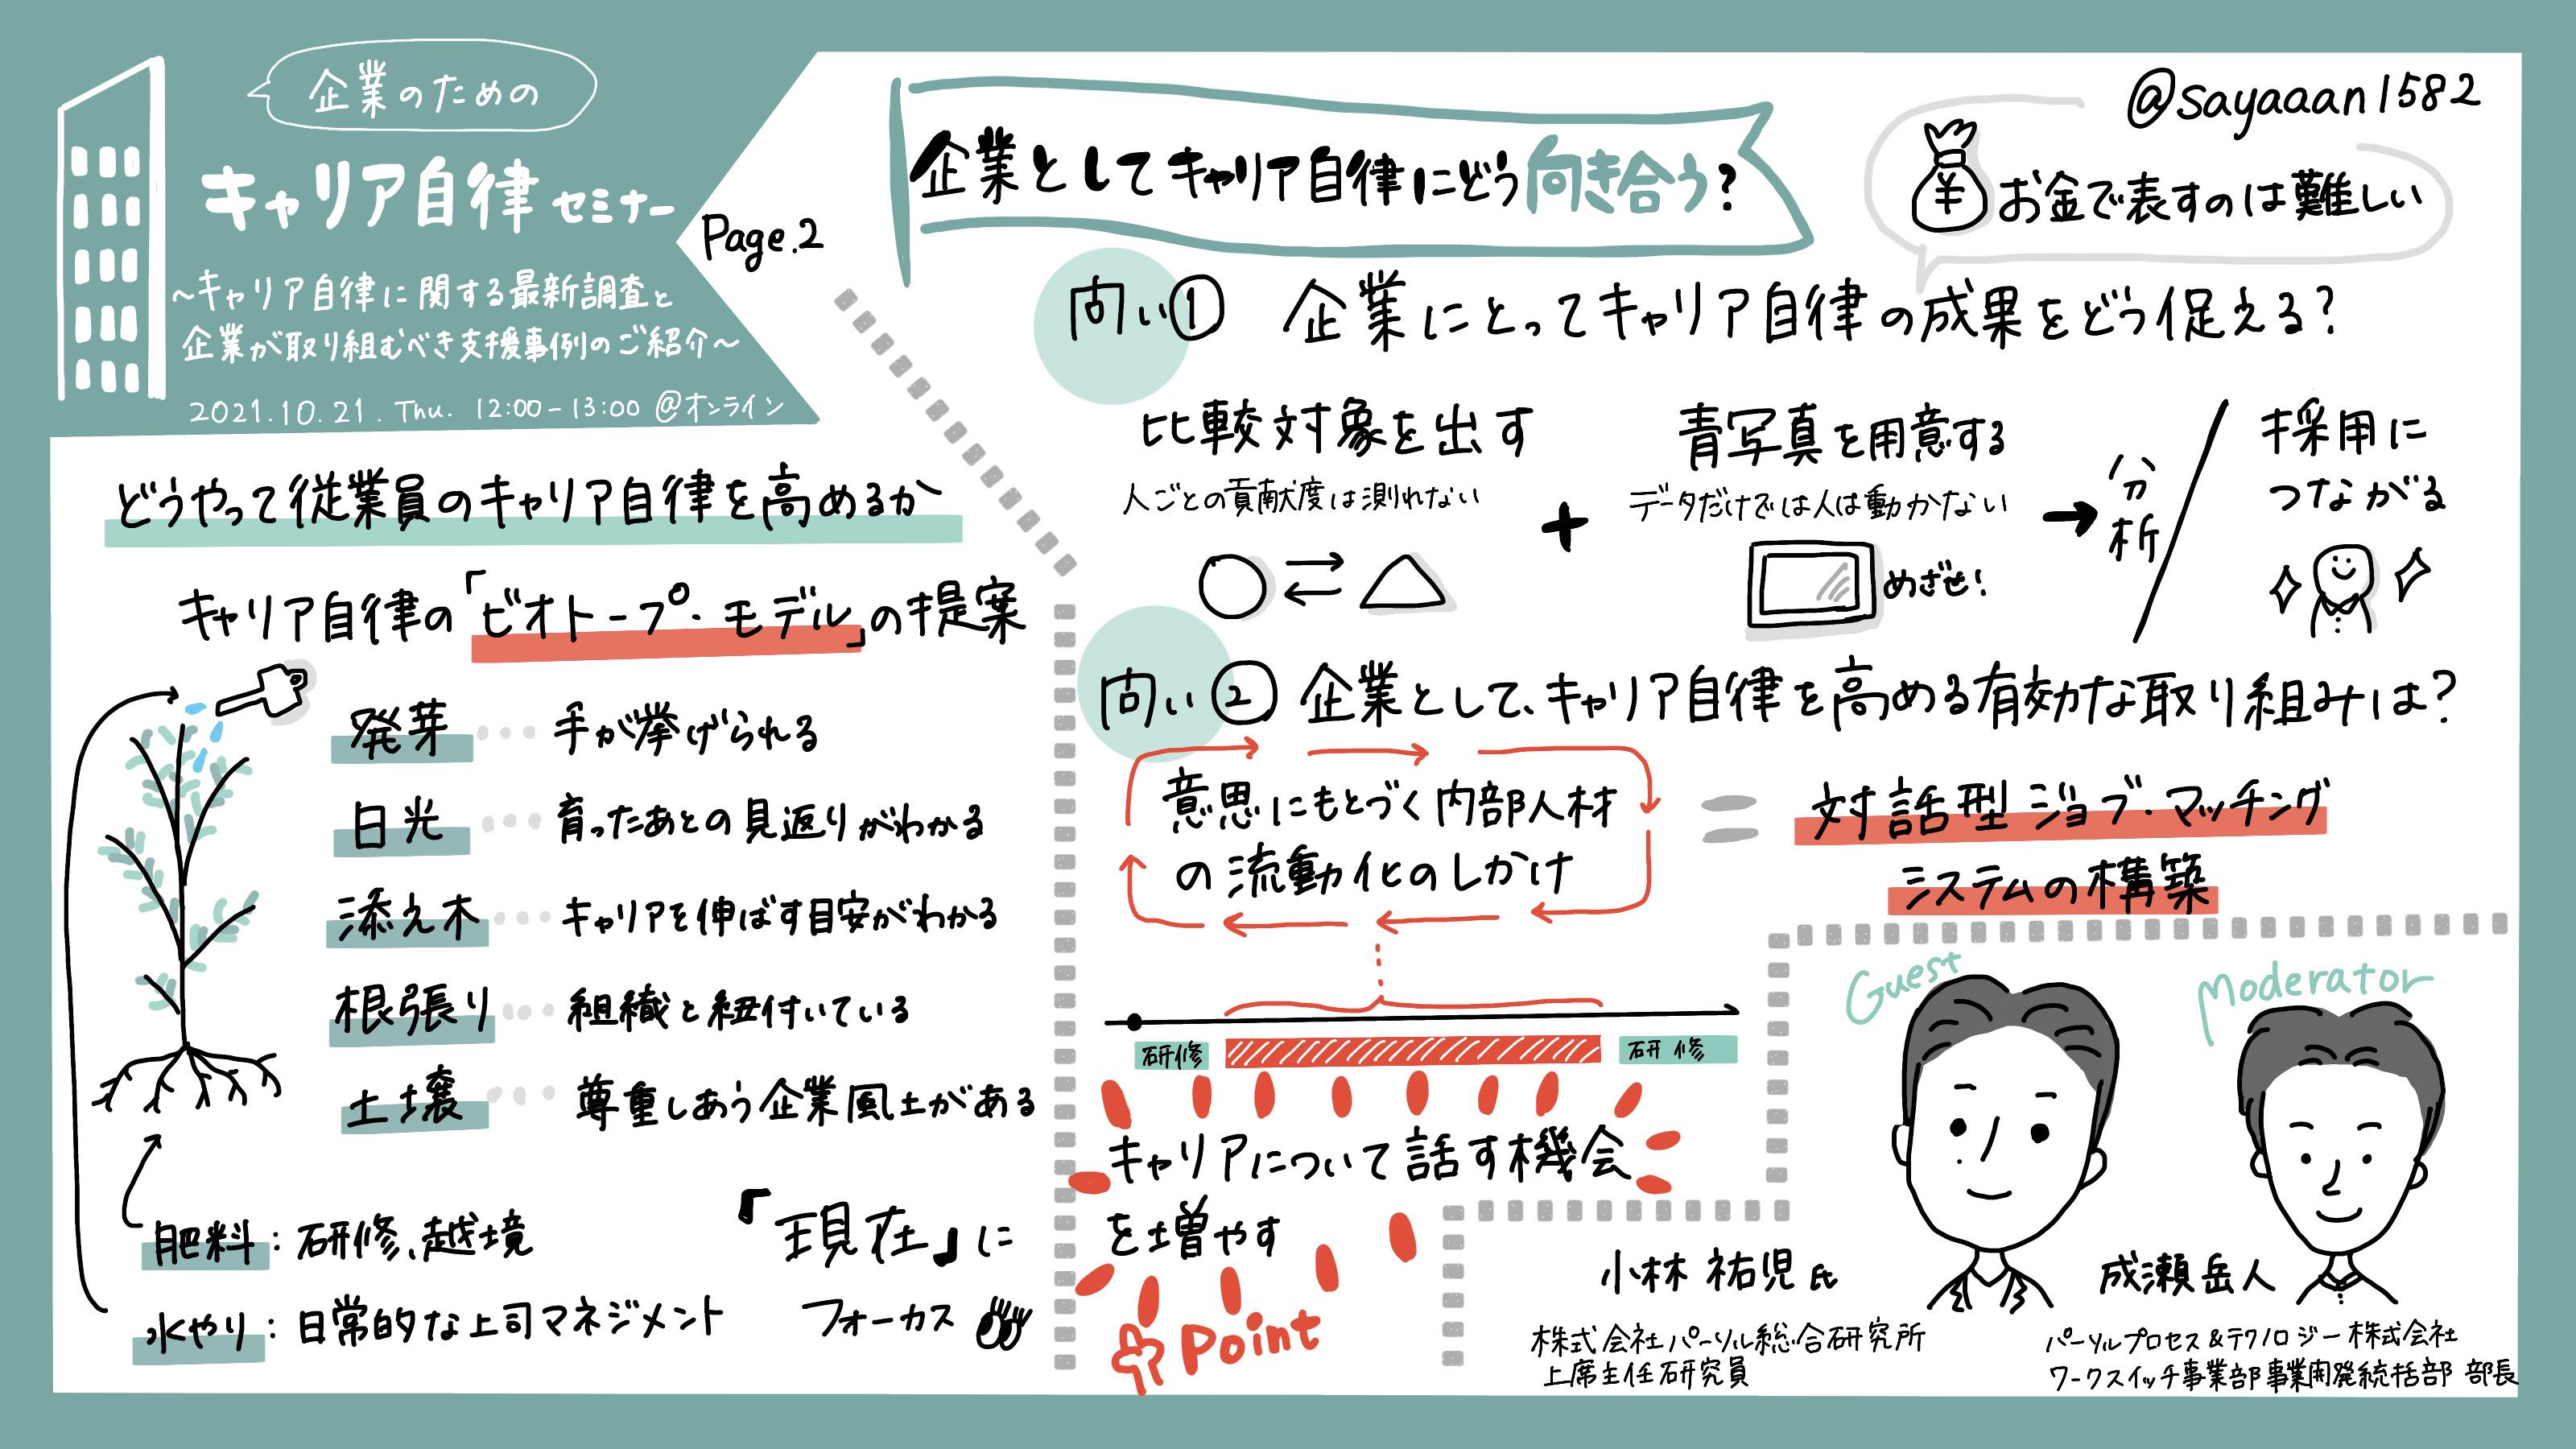 企業のための
キャリア自律セミナー
～キャリア自律に関する最新調査と
企業が取り組むべき支援事例のご紹介～
2021.10.21.Thu. 12:00-13:00 @オンライン
Page.2
どうやって従業員のキャリア自律を高めるか
キャリア自律の「ビオトープ・モデル」の提案
発芽 … 手が挙げられる
日光 … 育ったあとの見返りがわかる
添え木 … キャリアを伸ばす目安がわかる
根張り … 組織と紐付いている
土壌 … 尊重しあう企業風土がある
肥料：研修、越境
水やり：日常的な上司マネジメント
『現在』に
フォーカス
企業としてキャリア自律にどう向き合う?
@sayaaan1582
¥
お金で表すのは難しい
問い① 企業にとってキャリア自律の成果をどう促える?
比較対象を出す
人ごとの貢献度は測れない
+
青写真を用意する
データだけでは人は動かない
めざせ!
→
分析
/
採用に
つながる
問い② 企業として、キャリア自律を高める有効な取り組みは?
意思にもとづく内部人材
の流動化のしかけ
=
対話型ジョブ・マッチング
システムの構築
研修
研修
キャリアについて話す機会
を増やす
Point
Guest
小林 祐児 氏
株式会社パーソル総合研究所
上席主任研究員
Moderator
成瀬岳人
パーソルプロセス&テクノロジー株式会社
ワークスイッチ事業部事業開発統括部 部長